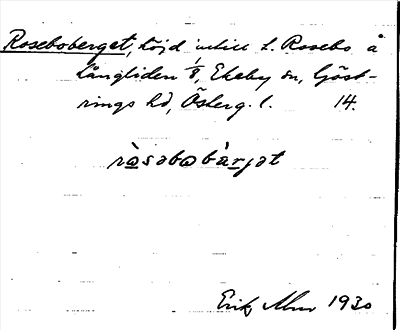 Roseboberget, höjd intill L. Rosebo å
Långliden 1/8, Ekeby sn, Göst-
rings hd, Österg. l. 14.
ràsəbobàrjət
Erik Alm 1930